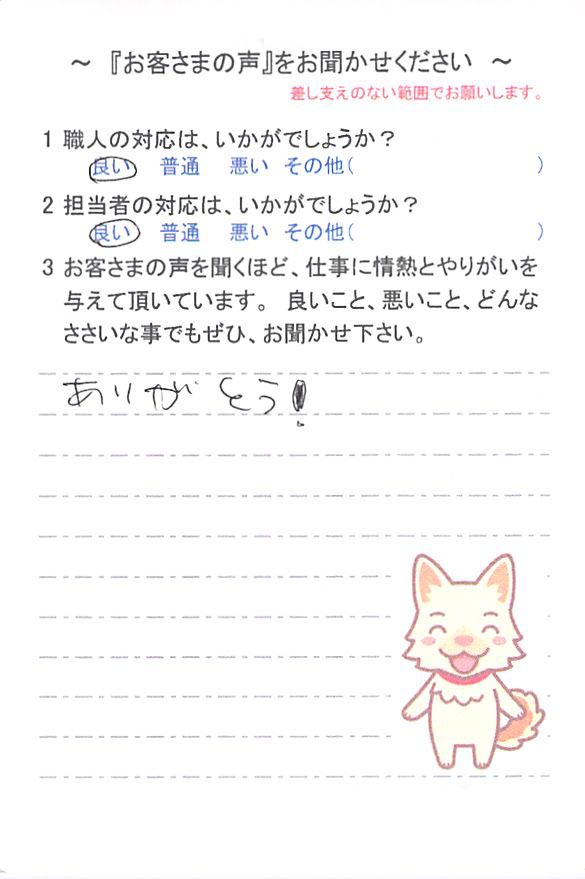 ～ 『お客さまの声』をお聞かせください ～
差し支えのない範囲でお願いします。
1 職人の対応は、いかがでしょうか？
良い 普通 悪い その他( )
2 担当者の対応は、いかがでしょうか？
良い 普通 悪い その他( )
3 お客さまの声を聞くほど、仕事に情熱とやりがいを
与えて頂いています。 良いこと、悪いこと、どんな
ささいな事でもぜひ、お聞かせ下さい。
ありがとう!